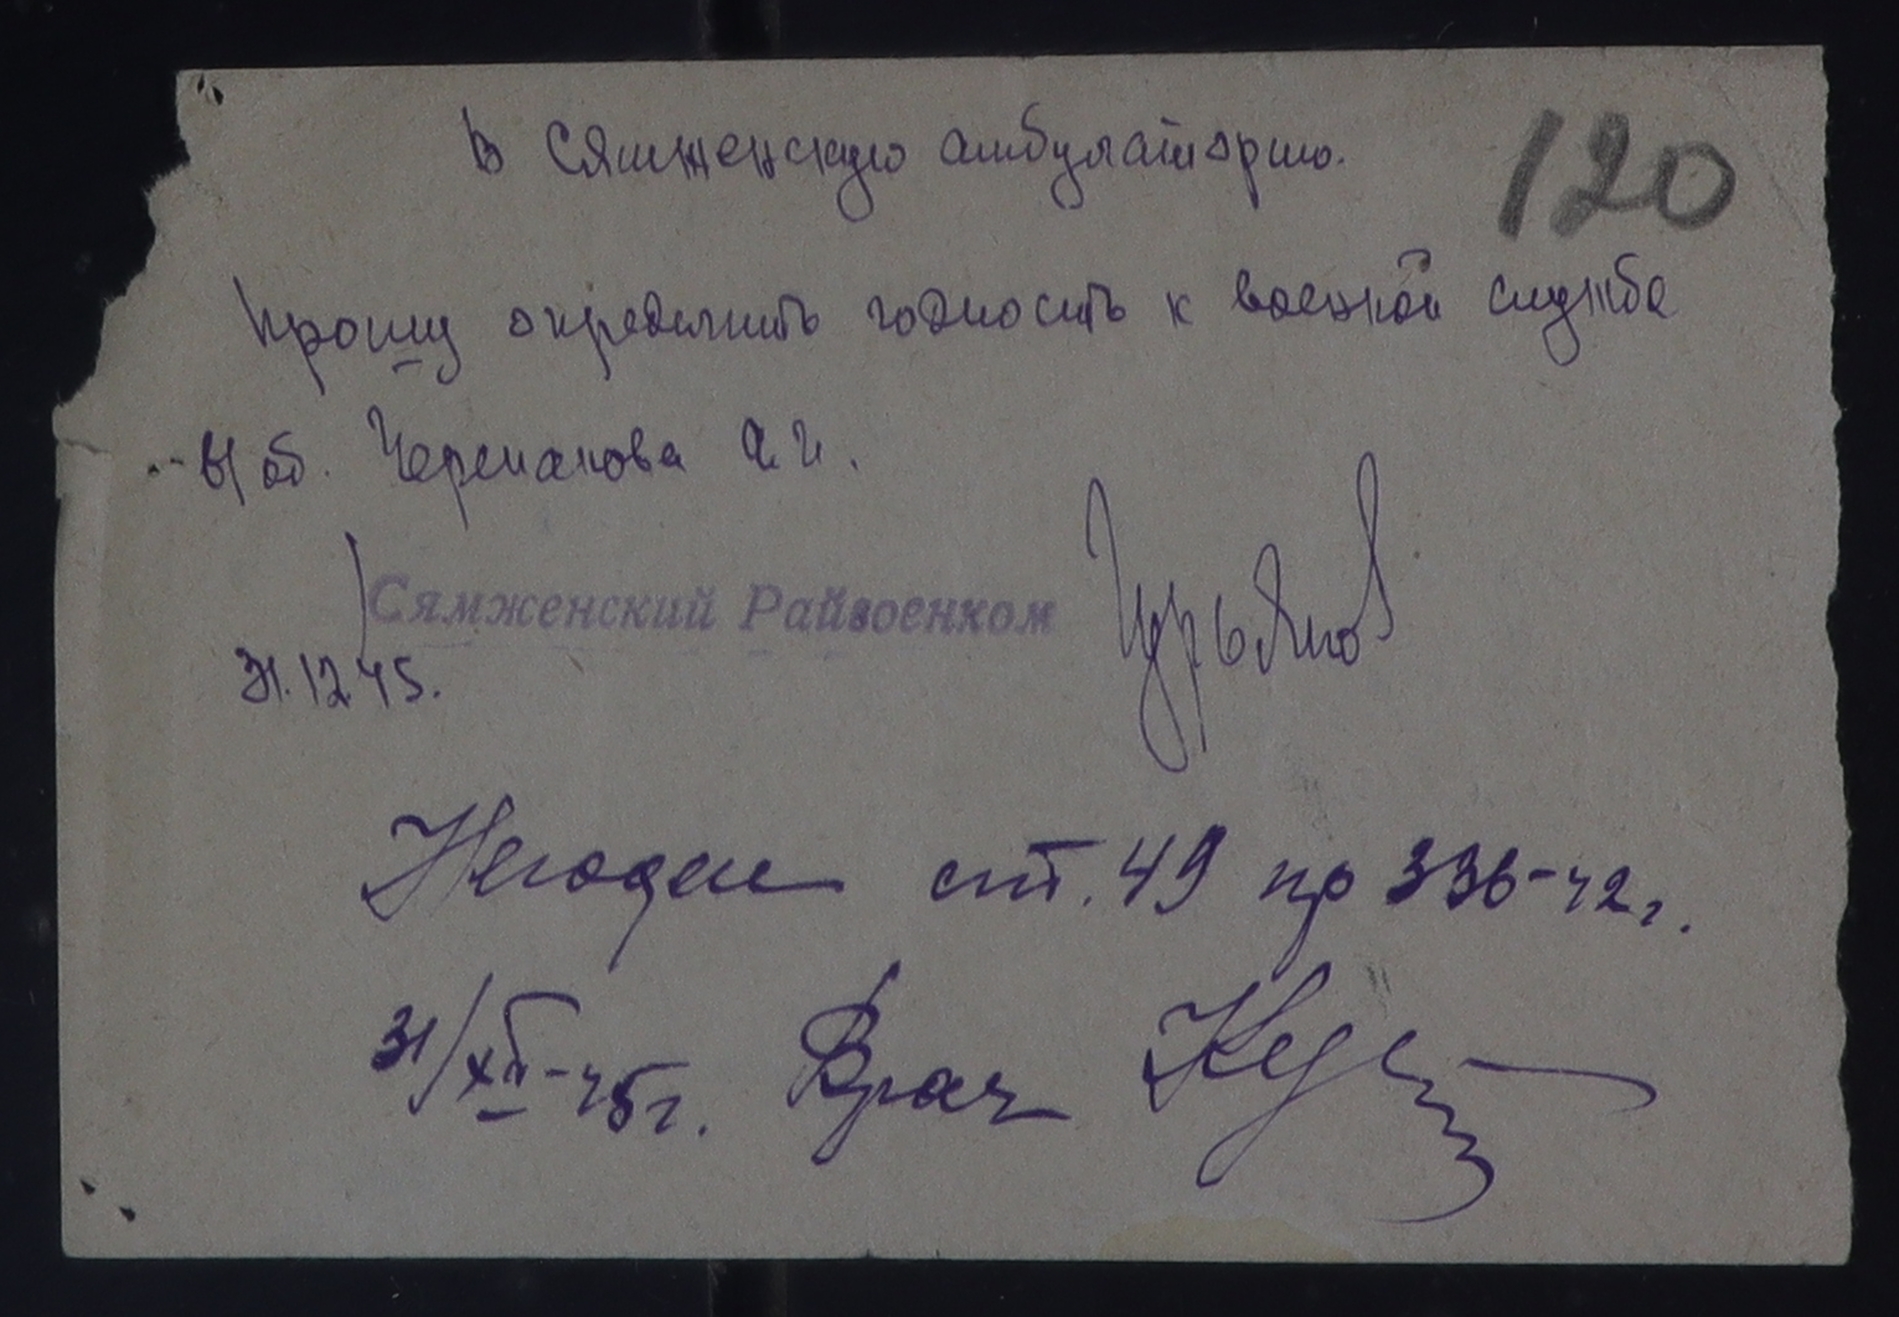 В Сямженскую амбулаторию.
120
Прошу определить годность к военной службе
в/об. Черепанова А.И.
Сямженский Райвоенком Гурьянов
31.12.45.
Негоден ст. 49 пр 336-42г.
31/XII-45г. Врач